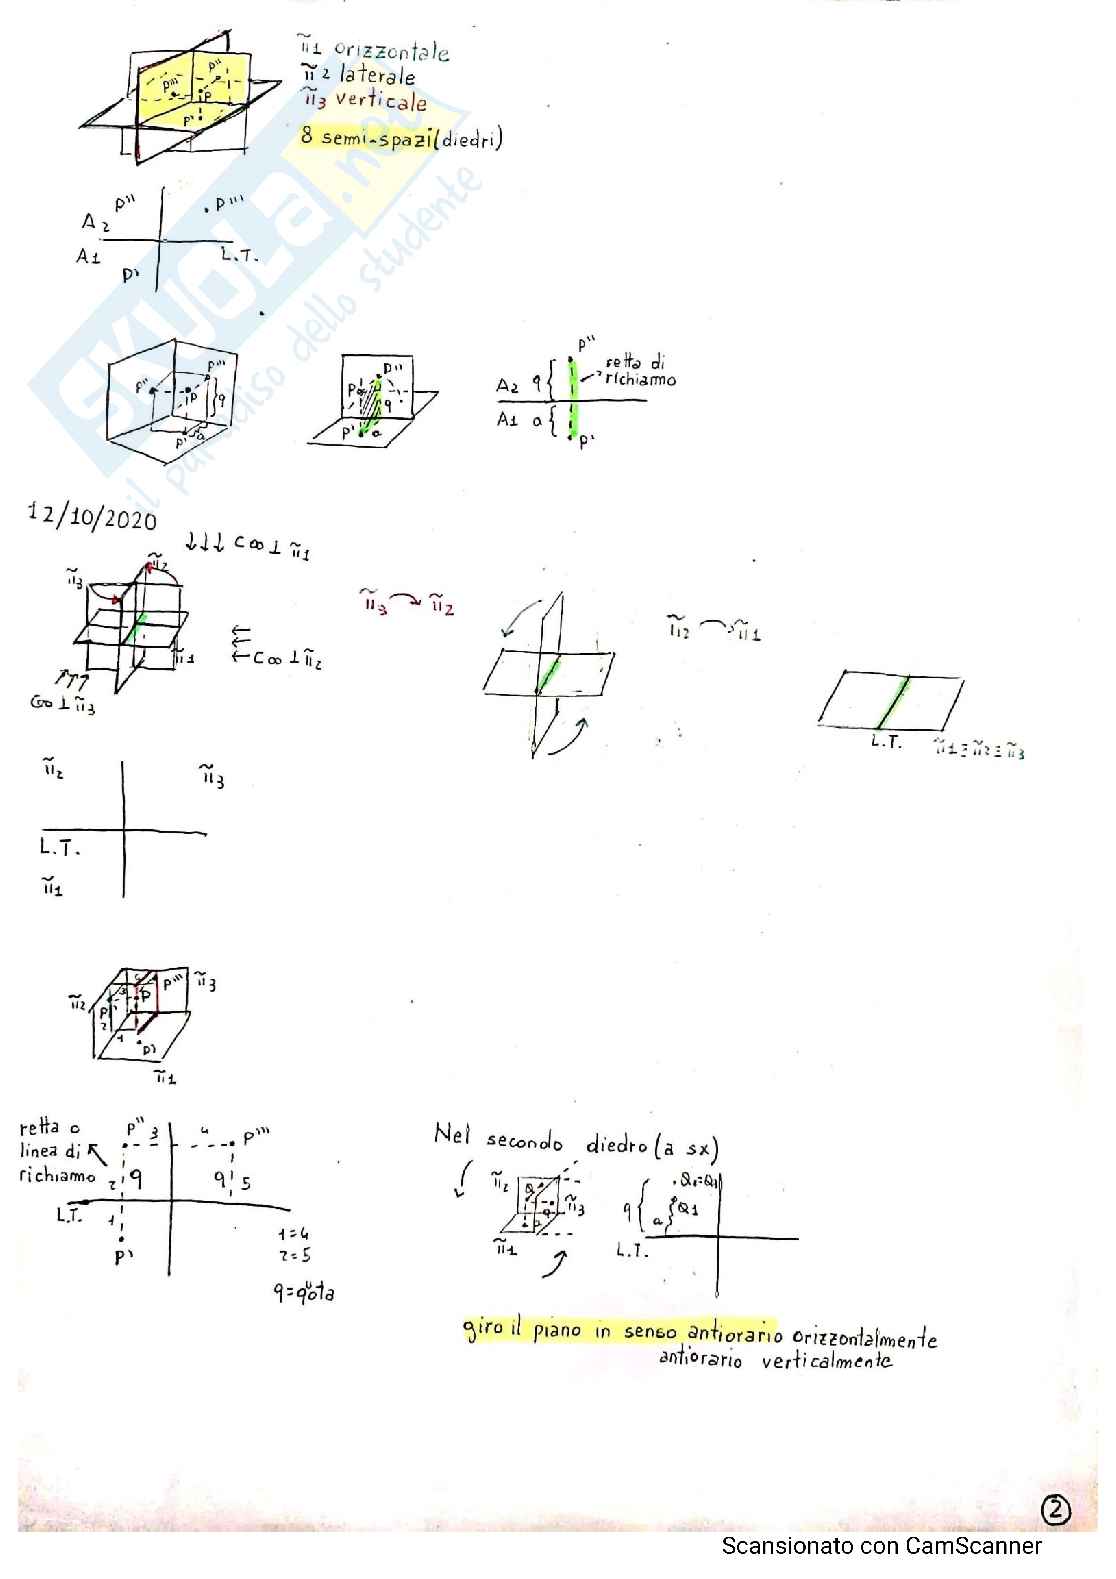 π1 orizzontale
π2 laterale
π3 verticale
8 semi-spazi (diedri)
P'''
P''
P
P'
A2 P'' . P'''
A1 L.T.
P'
SKUOLA.net
il paradiso dello studente
P'' P'''
P q
P' a
P''
P
q
P' a
P''
A2 q retta di richiamo
A1 a
P'
12/10/2020
↓↓↓ C∞ ⊥ π1
π3 π2
π1
C∞ ⊥ π2
C∞ ⊥ π3
π3 π2
π2 π1
L.T. π1≡π2≡π3
π2 π3
L.T.
π1
π2 P''' π3
P
2 1
P'
π1
retta o
linea di
richiamo
P'' 3 4 P'''
2 q q 5
L.T. 1
P'
1=4
2=5
q=quota
Nel secondo diedro (a sx)
π2 π3
π1
q a Q1
L.T.
giro il piano in senso antiorario orizzontalmente
antiorario verticalmente
2
Scansionato con CamScanner